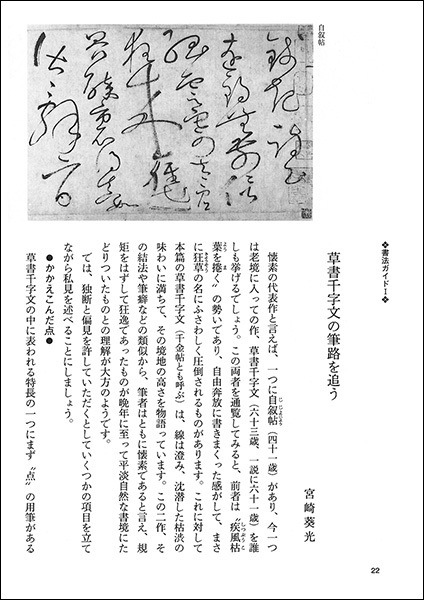 ❖書法ガイドⅠ❖
草書千字文の筆路を追う
宮崎葵光
懐素の代表作と言えば、一つに自叙帖（四十一歳）があり、今一つ
は老境に入っての作、草書千字文（六十三歳、一説に六十一歳）を誰
しも挙げるでしょう。この両者を通覧してみると、前者は〝疾風枯
葉を捲く〟の勢いであり、自由奔放に書きまくった感がして、まさ
に狂草の名にふさわしく圧倒されるものがあります。これに対して
本篇の草書千字文（千金帖とも呼ぶ）は、線は澄み、沈潜した枯渋の
味わいに満ちて、その境地の高さを物語っています。この二作、そ
の結法や筆癖などの類似から、筆者はともに懐素であると言え、規
矩をはずして狂逸であったものが晩年に至って平淡自然な書境にた
どりついたものとの理解が大方のようです。
では、独断と偏見を許していただくとしていくつかの項目を立て
ながら私見を述べることにしましょう。
●かかえこんだ点●
草書千字文の中に表われる特長の一つにまず〝点〟の用筆がある
自叙帖
22